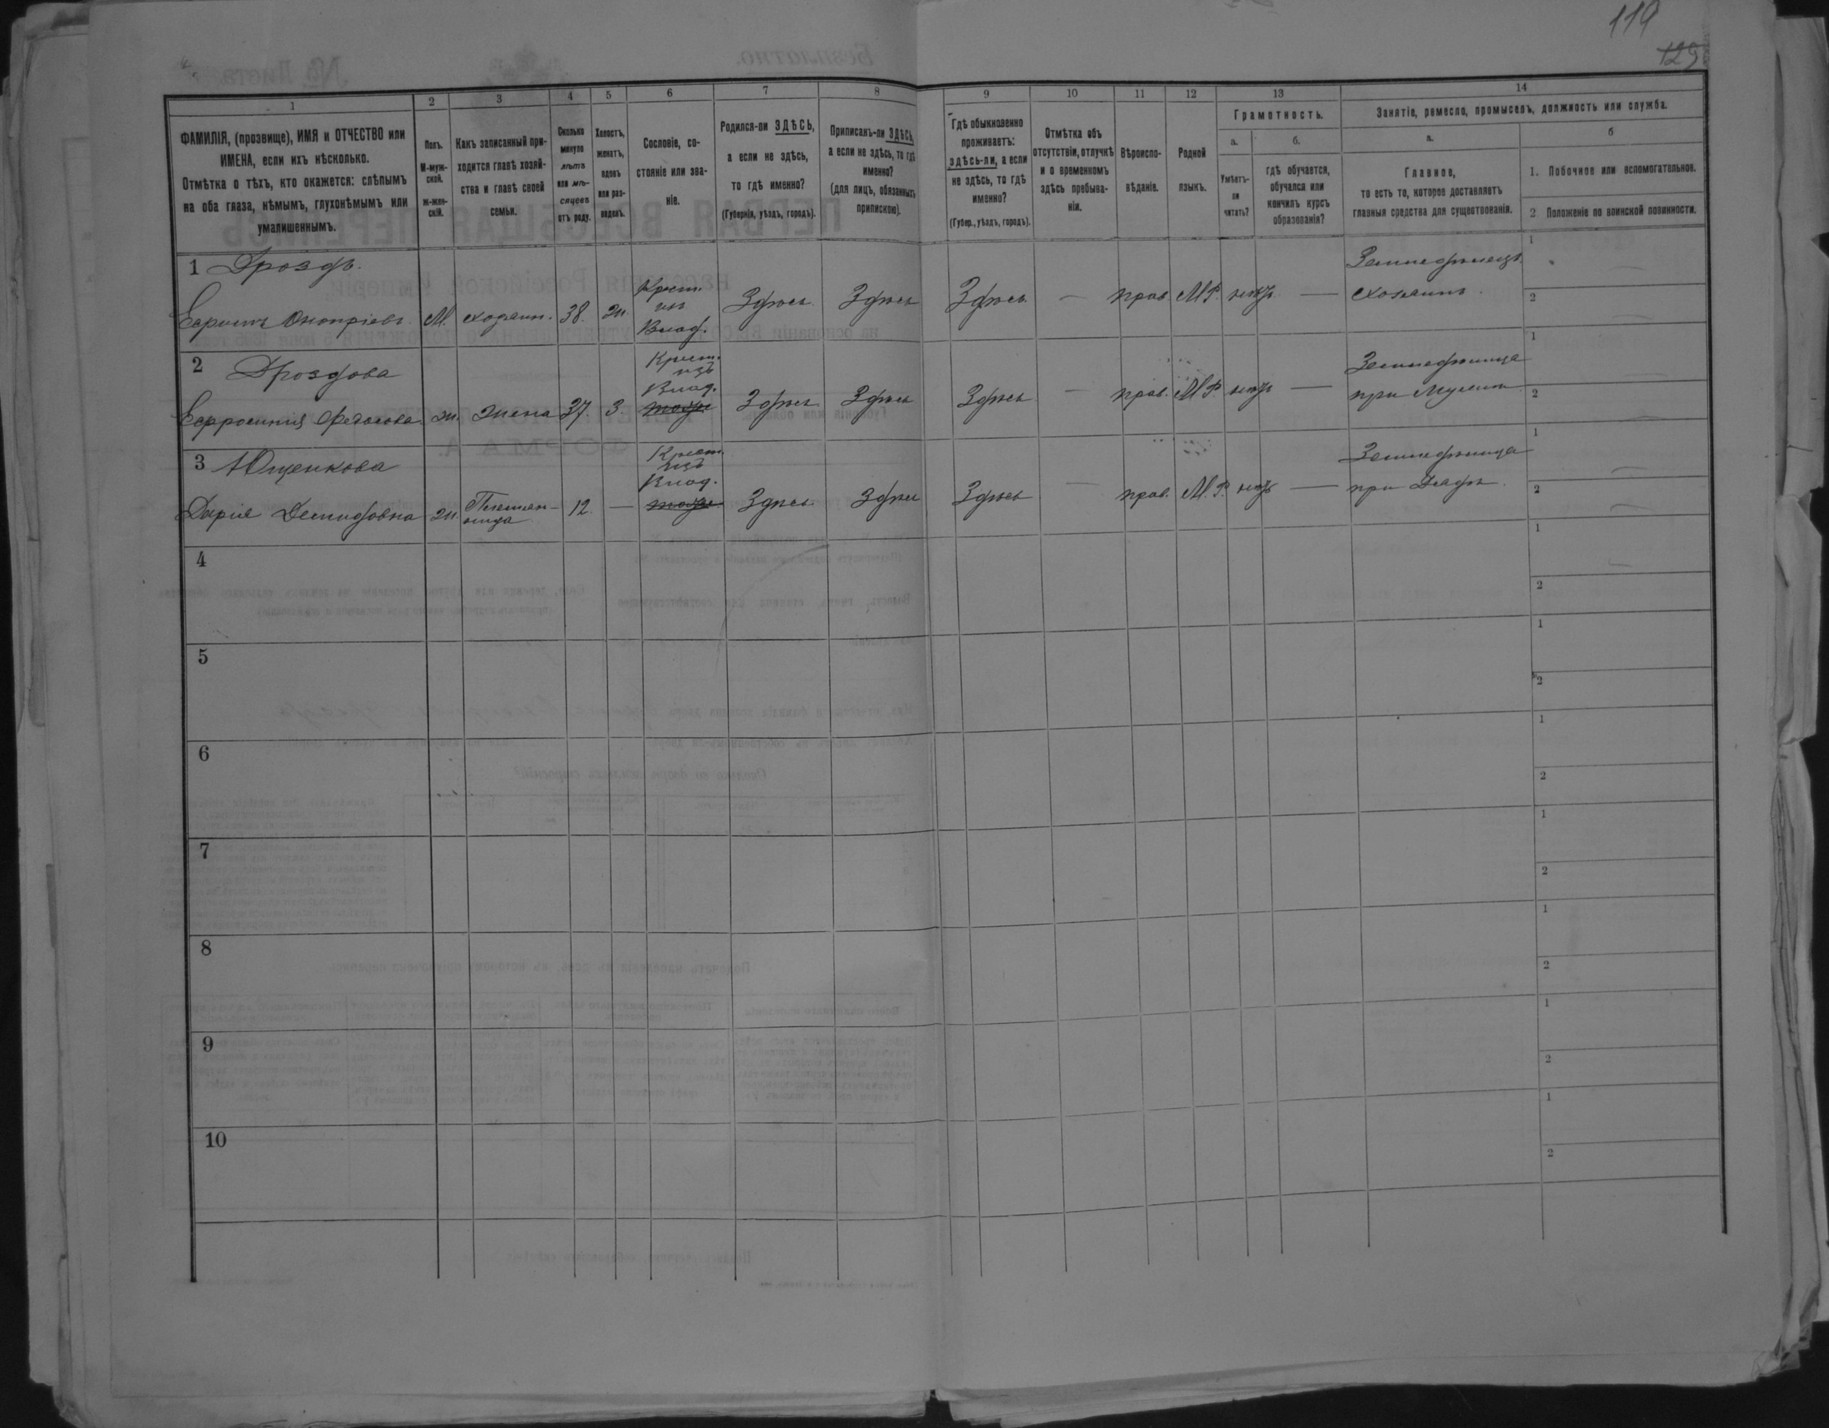 119
129
1
2
3
4
5
6
7
8
9
10
11
12
13
14
ФАМИЛІЯ, (прозвище), ИМЯ и ОТЧЕСТВО или
ИМЕНА, если ихъ нѣсколько.
Отмѣтка о тѣхъ, кто окажется: слѣпымъ
на оба глаза, нѣмымъ, глухонѣмымъ или
умалишеннымъ.
Полъ.
М-муж-
ской.
Ж-жен-
скій.
Какъ записанный при-
ходится главѣ хозяй-
ства и главѣ своей
семьи.
Сколько
минуло
лѣтъ
или мѣ-
сяцевъ
отъ роду.
Холостъ,
женатъ,
вдовъ
или раз-
веденъ.
Сословіе, со-
стояніе или зва-
ніе.
Родился-ли ЗДѢСЬ,
а если не здѣсь,
то гдѣ именно?
(Губернія, уѣздъ, городъ).
Приписанъ-ли ЗДѢСЬ,
а если не здѣсь, то гдѣ
именно?
(для лицъ, обязанныхъ
припискою).
Гдѣ обыкновенно
проживаетъ:
здѣсь-ли, а если
не здѣсь, то гдѣ
именно?
(Губер., уѣздъ, городъ).
Отмѣтка объ
отсутствіи, отлучкѣ
и о временномъ
здѣсь пребыва-
ніи.
Вѣроиспо-
вѣданіе.
Родной
языкъ.
Грамотность.
а.
Умѣетъ-
ли
читать?
б.
гдѣ обучается,
обучался или
кончилъ курсъ
образованія?
Занятіе, ремесло, промыселъ, должность или служба.
а.
Главное,
то есть то, которое доставляетъ
главныя средства для существованія.
б
1. Побочное или вспомогательное.
2 Положеніе по воинской повинности.
1 Дроздъ.
Оноприевъ М. хозяин. 38. ж.
Крест.
из
Влад.
Здѣсь Здѣсь Здѣсь — прав. М.Р. нѣтъ —
Земледѣлецъ
хозяинъ
1
2
2 Дроздова
ж. жена 37. З.
Крест.
изъ
Влад.
Здѣсь Здѣсь Здѣсь — прав. М.Р. нѣтъ —
Земледѣлица
при
1
2
3 Ющенкова
Дарія Демидовна ж. 12. —
Крест.
изъ
Влад.
Здѣсь Здѣсь Здѣсь — прав. М.Р. нѣтъ —
Земледѣлица
при Дядѣ
1
2
4
1
2
5
1
2
6
1
2
7
1
2
8
1
2
9
1
2
10
1
2